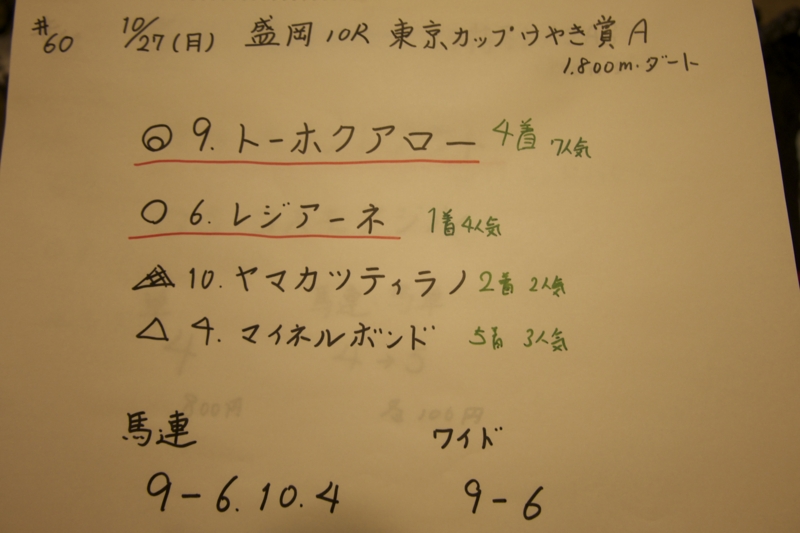 #60 10/27(月) 盛岡10R 東京カップけやき賞 A
1.800m・ダート
◎ 9. トーホクアロー 4着 7人気
○ 6. レジアーネ 1着 4人気
▲ 10. ヤマカツティラノ 2着 2人気
△ 4. マイネルボンド 5着 3人気
馬連 ワイド
9-6.10.4 9-6